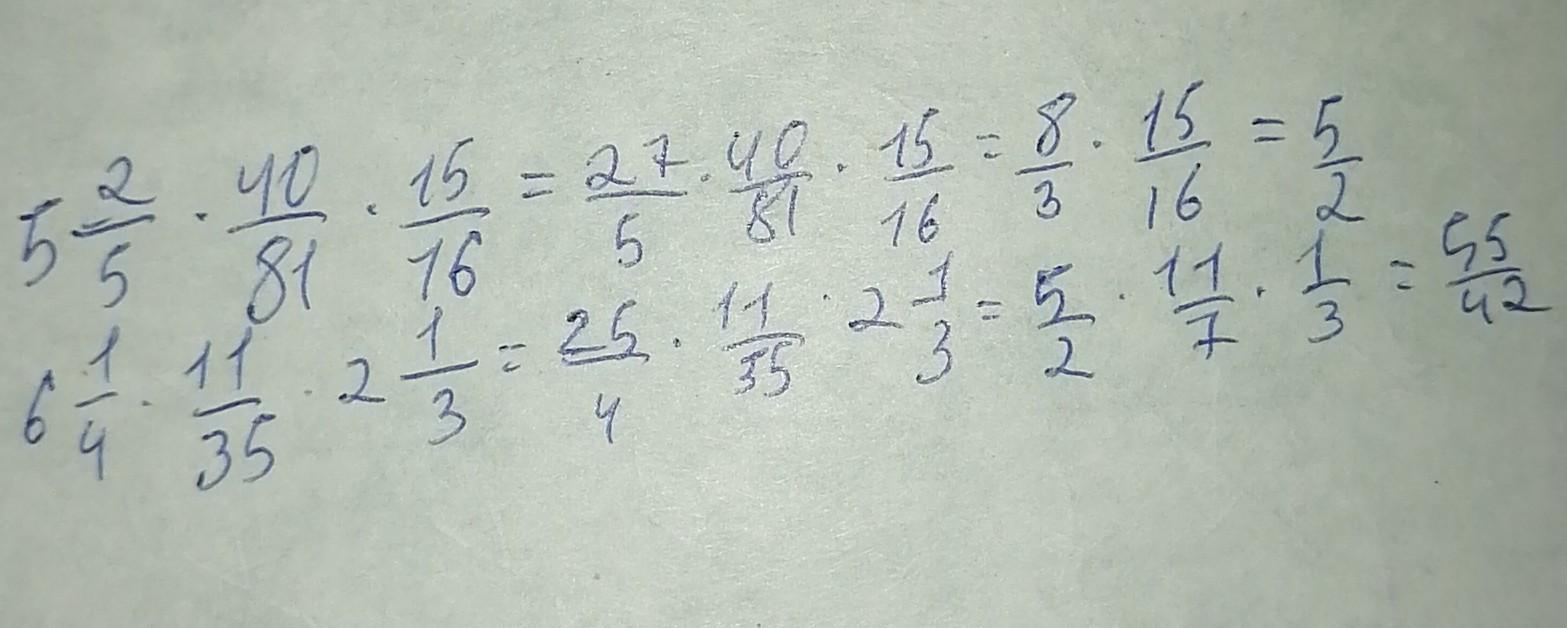 5 2/5 · 40/81 · 15/16 = 27/5 · 40/81 · 15/16 = 8/3 · 15/16 = 5/2
6 1/4 · 11/35 · 2 1/3 = 25/4 · 11/35 · 2 1/3 = 5/2 · 11/7 · 1/3 = 55/42